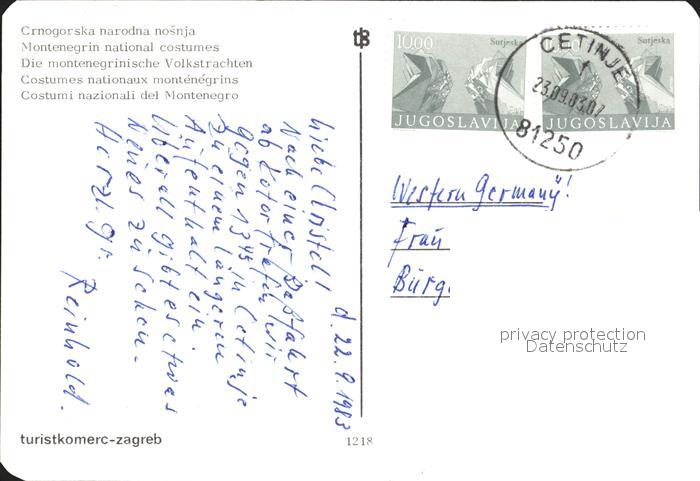 Crnogorska narodna nošnja
Montenegrin national costumes
Die montenegrinische Volkstrachten
Costumes nationaux monténégrins
Costumi nazionali del Montenegro
10.00 Sutjeska
JUGOSLAVIJA
Sutjeska
JUGOSLAVIJA
CETINJE
23.09.83.07
81250
d. 22.9.1983
Liebe Christel!
Nach einer Paßfahrt
ab Kotor trafen wir
gegen 13 45 in Cetinje
zu einem längeren
Aufenthalt ein.
Überall gibt es etwas
Neues zu sehen.
Herzl. Gr.
Reinhold.
Western Germany!
Frau
Burg.
privacy protection
Datenschutz
turistkomerc-zagreb
1218